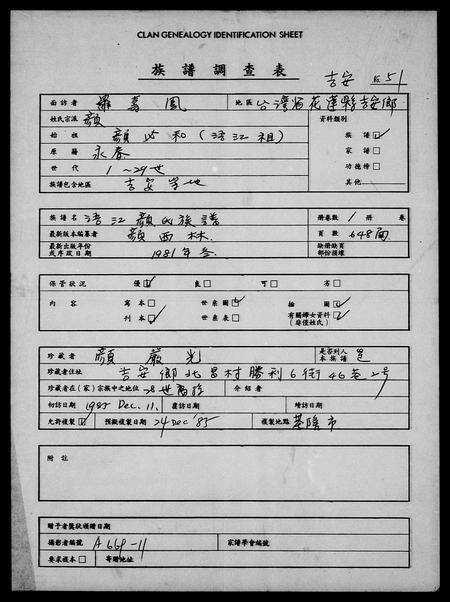 CLAN GENEALOGY IDENTIFICATION SHEET
族譜調查表
吉安 51
面訪者 羅萬鳳 地區 台灣省花蓮縣吉安鄉
姓氏宗派 顏 資料類別
始祖 顏必和(浯江祖) 族譜☑
原籍 永春 家譜□
世代 1~29世 功德榜□
族譜包含地區 吉安等地 其他
族譜名 浯江顏氏族譜 册卷數 1册 卷
最新版本編纂者 顏西林 頁數 648面
最新出版年份或序跋日期 1981年冬 缺册缺頁部份損壞
保管狀況 優☑ 良□ 可□ 劣□
內容 寫本□ 世系圖☑ 插圖☑
刊本☑ 世系表□ 有關婦女資料☑(母僅姓氏)
珍藏者 顏嚴光 是否列入本族譜 是
珍藏者住址 吉安鄉北昌村勝利6街46巷2號
珍藏者在(家)宗族中之地位 28世裔孫 介紹者
初訪日期 1985 Dec. 11. 覆訪日期 續訪日期
允許複製☑ 預擬複製日期 24 Dec '85 複製地點 基隆市
附註
贈予者獎狀頒贈日期
攝影者編號 A 669-11 家譜學會編號
要求複本□ 寄贈地址